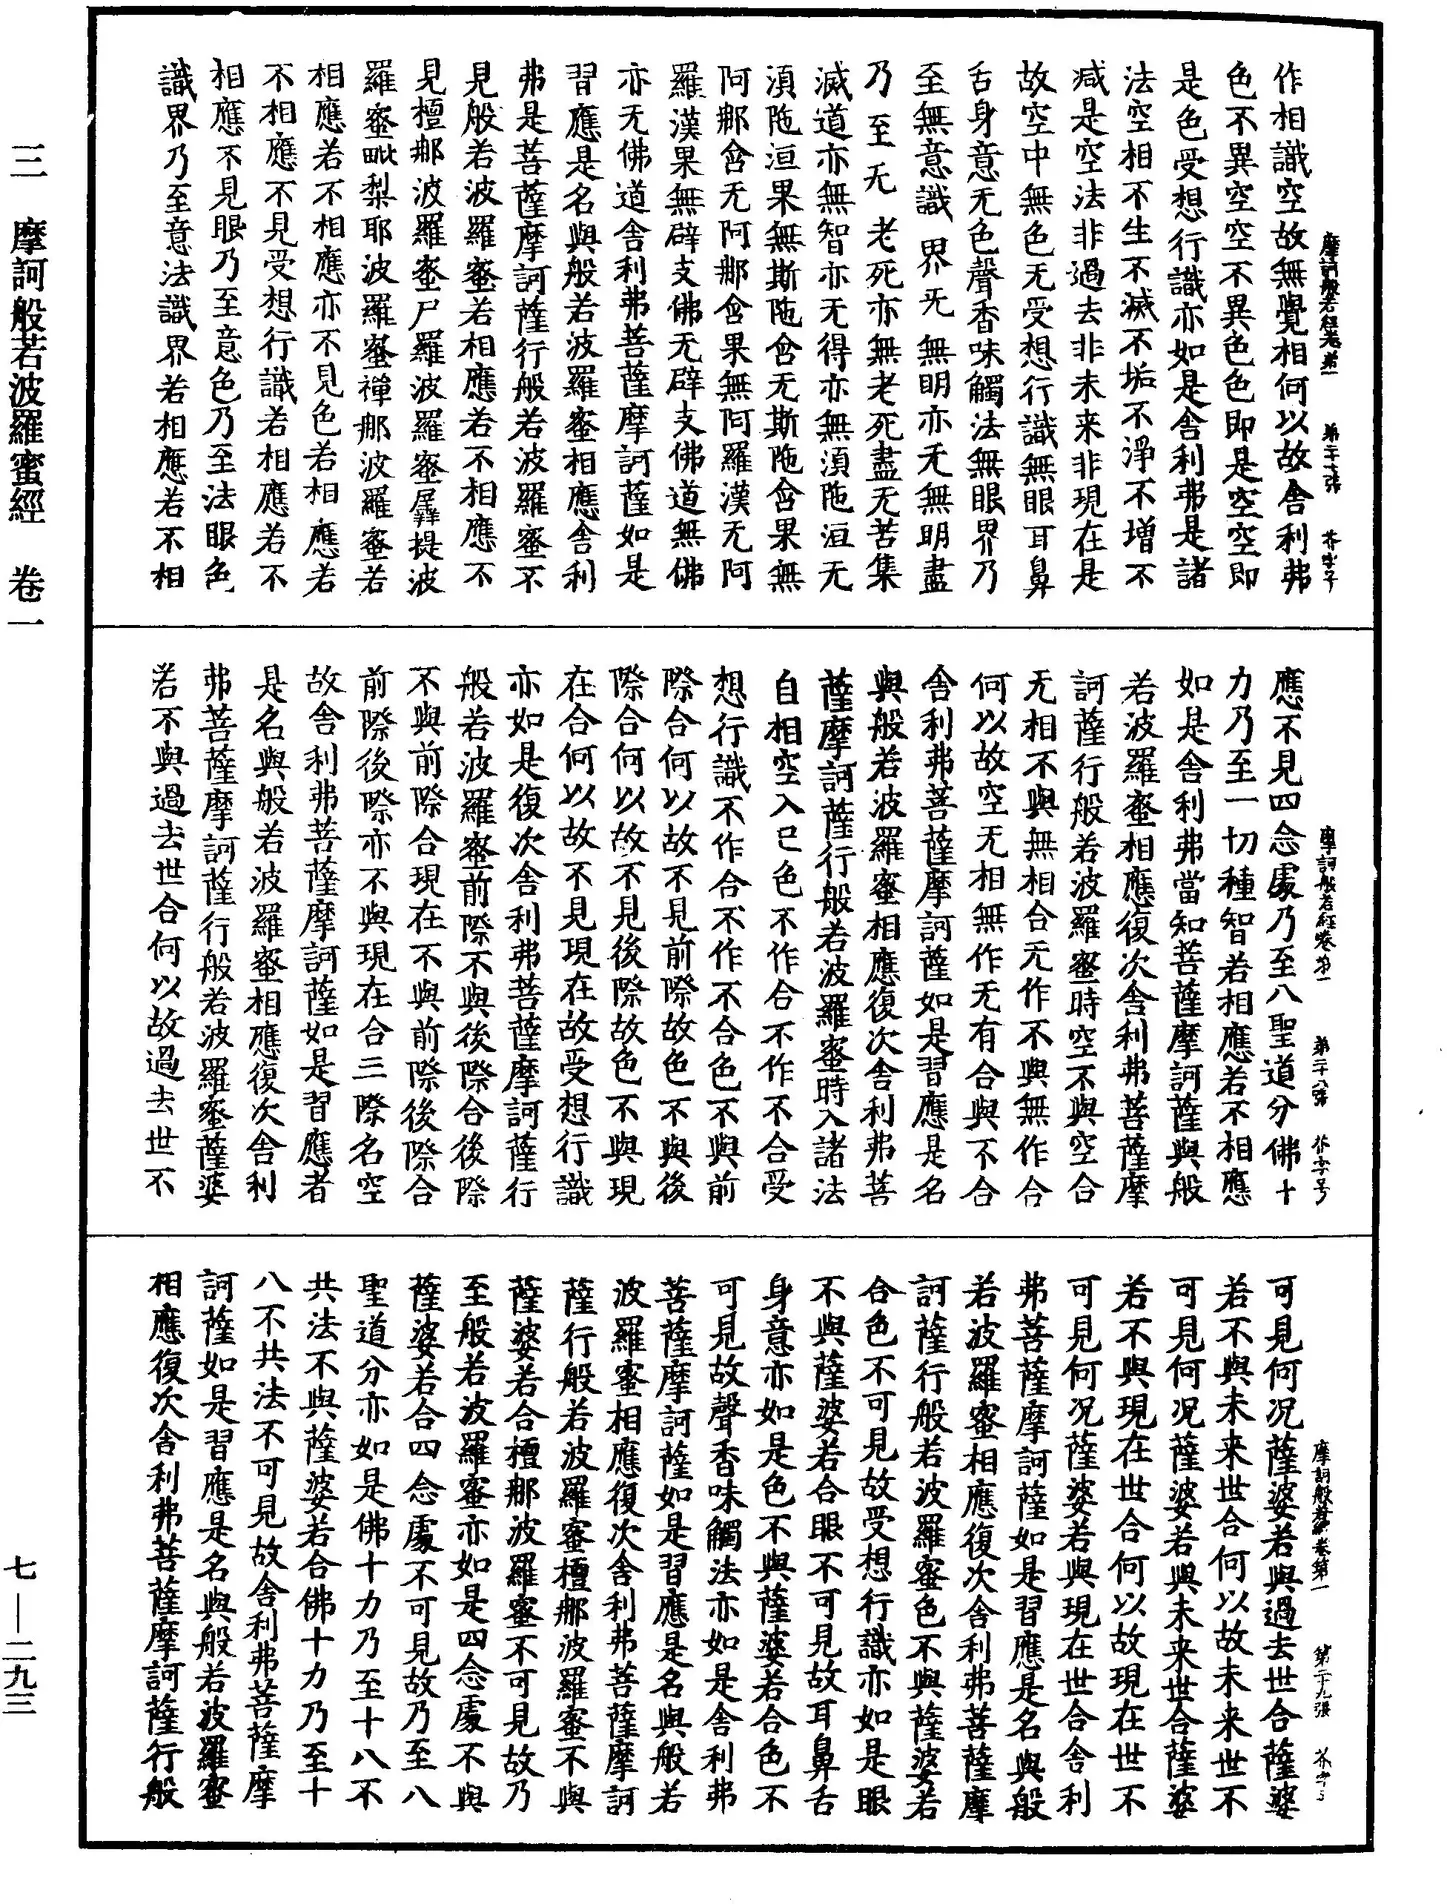 三 摩訶般若波羅蜜經 卷一
七—二九三
摩訶般若經卷第一 第二十七張 芥字子
作相識空故無覺相何以故舍利弗
色不異空空不異色色即是空空即
是色受想行識亦如是舍利弗是諸
法空相不生不滅不垢不淨不增不
減是空法非過去非未来非現在是
故空中無色无受想行識無眼耳鼻
舌身意无色聲香味觸法無眼界乃
至無意識界无無明亦无無明盡
乃至无老死亦無老死盡无苦集
滅道亦無智亦无得亦無湏陁洹无
湏陁洹果無斯陁含无斯陁含果無
阿那含无阿那含果無阿羅漢无阿
羅漢果無辟支佛无辟支佛道無佛
亦无佛道舍利弗菩薩摩訶薩如是
習應是名與般若波羅蜜相應舍利
弗是菩薩摩訶薩行般若波羅蜜不
見般若波羅蜜若相應若不相應不
見檀那波羅蜜尸羅波羅蜜羼提波
羅蜜毗梨耶波羅蜜禪那波羅蜜若
相應若不相應亦不見色若相應若
不相應不見受想行識若相應若不
相應不見眼乃至意色乃至法眼色
識界乃至意法識界若相應若不相
摩訶般若經卷第一 第二十八張 芥字号
應不見四念處乃至八聖道分佛十
力乃至一切種智若相應若不相應
如是舍利弗當知菩薩摩訶薩與般
若波羅蜜相應復次舍利弗菩薩摩
訶薩行般若波羅蜜時空不與空合
无相不與無相合无作不與無作合
何以故空无相無作无有合與不合
舍利弗菩薩摩訶薩如是習應是名
與般若波羅蜜相應復次舍利弗菩
薩摩訶薩行般若波羅蜜時入諸法
自相空入已色不作合不作不合受
想行識不作合不作不合色不與前
際合何以故不見前際故色不與後
際合何以故不見後際故色不與現
在合何以故不見現在故受想行識
亦如是復次舍利弗菩薩摩訶薩行
般若波羅蜜前際不與後際合後際
不與前際合現在不與前際後際合
前際後際亦不與現在合三際名空
故舍利弗菩薩摩訶薩如是習應者
是名與般若波羅蜜相應復次舍利
弗菩薩摩訶薩行般若波羅蜜薩婆
若不與過去世合何以故過去世不
摩訶般若經卷第一 第二十九張 芥字号
可見何况薩婆若與過去世合薩婆
若不與未来世合何以故未来世不
可見何况薩婆若與未来世合薩婆
若不與現在世合何以故現在世不
可見何况薩婆若與現在世合舍利
弗菩薩摩訶薩如是習應是名與般
若波羅蜜相應復次舍利弗菩薩摩
訶薩行般若波羅蜜色不與薩婆若
合色不可見故受想行識亦如是眼
不與薩婆若合眼不可見故耳鼻舌
身意亦如是色不與薩婆若合色不
可見故聲香味觸法亦如是舍利弗
菩薩摩訶薩如是習應是名與般若
波羅蜜相應復次舍利弗菩薩摩訶
薩行般若波羅蜜檀那波羅蜜不與
薩婆若合檀那波羅蜜不可見故乃
至般若波羅蜜亦如是四念處不與
薩婆若合四念處不可見故乃至八
聖道分亦如是佛十力乃至十八不
共法不與薩婆若合佛十力乃至十
八不共法不可見故舍利弗菩薩摩
訶薩如是習應是名與般若波羅蜜
相應復次舍利弗菩薩摩訶薩行般